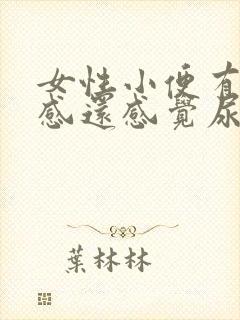 女性小便有
感還感覺尿
葉林林